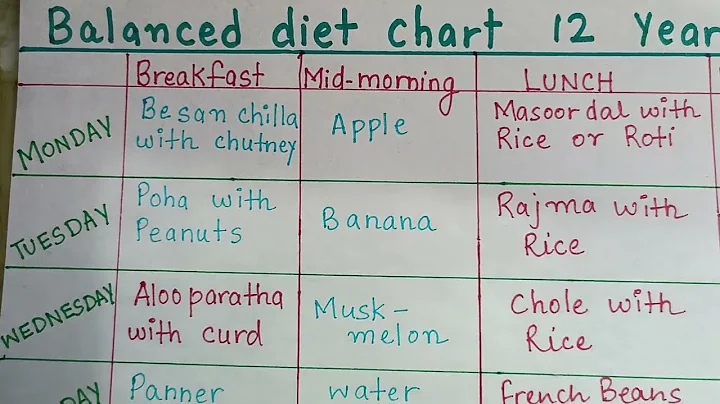 Balanced diet chart 12 Year
Breakfast Mid-morning LUNCH
MONDAY Besan chilla with chutney Apple Masoor dal with Rice or Roti
TUESDAY Poha with Peanuts Banana Rajma with Rice
WEDNESDAY Aloo paratha with curd Musk-melon Chole with Rice
DAY Panner water French Beans